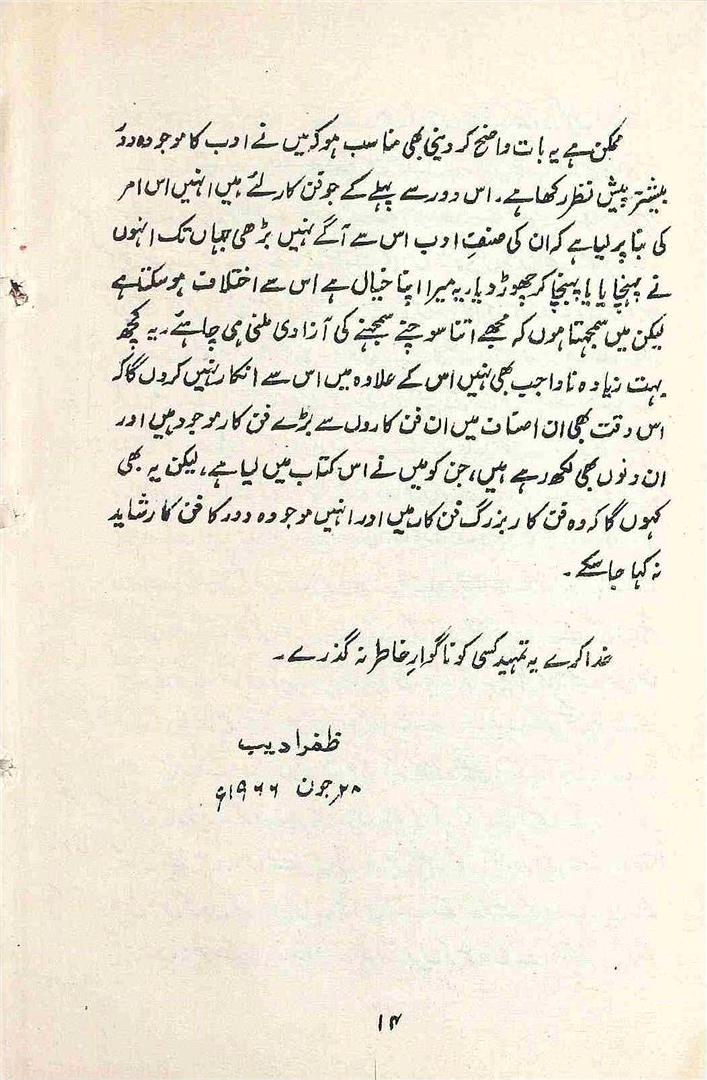 ممکن ہے یہ بات واضح کر دینی بھی مناسب ہو کہ میں نے ادب کا موجودہ دور
بیشتر پیش نظر رکھا ہے۔ اس دور سے پہلے کے جو فن کار لئے ہیں انہیں اس امر
کی بنا پر لیا ہے کہ ان کی صنفِ ادب اس سے آگے نہیں بڑھی جہاں تک انہوں
نے پہنچایا یا پہنچا کر چھوڑ دیا، یہ میرا اپنا خیال ہے اس سے اختلاف ہو سکتا ہے
لیکن میں سمجھتا ہوں کہ مجھے اتنا سوچنے سمجھنے کی آزادی ملنی ہی چاہئے، یہ کچھ
بہت زیادہ نا واجب بھی نہیں اس کے علاوہ میں اس سے انکار نہیں کروں گا کہ
اس وقت بھی ان اصناف میں ان فن کاروں سے بڑے فن کار موجود ہیں اور
ان دنوں بھی لکھ رہے ہیں، جن کو میں نے اس کتاب میں لیا ہے، لیکن یہ بھی
کہوں گا کہ وہ فن کار بزرگ فن کار ہیں اور انہیں موجودہ دور کا فن کار شاید
نہ کہا جا سکے۔
خدا کرے یہ تمہید کسی کو ناگوارِ خاطر نہ گذرے۔
ظفر ادیب
جون ۱۹۶۶ء
۱۴